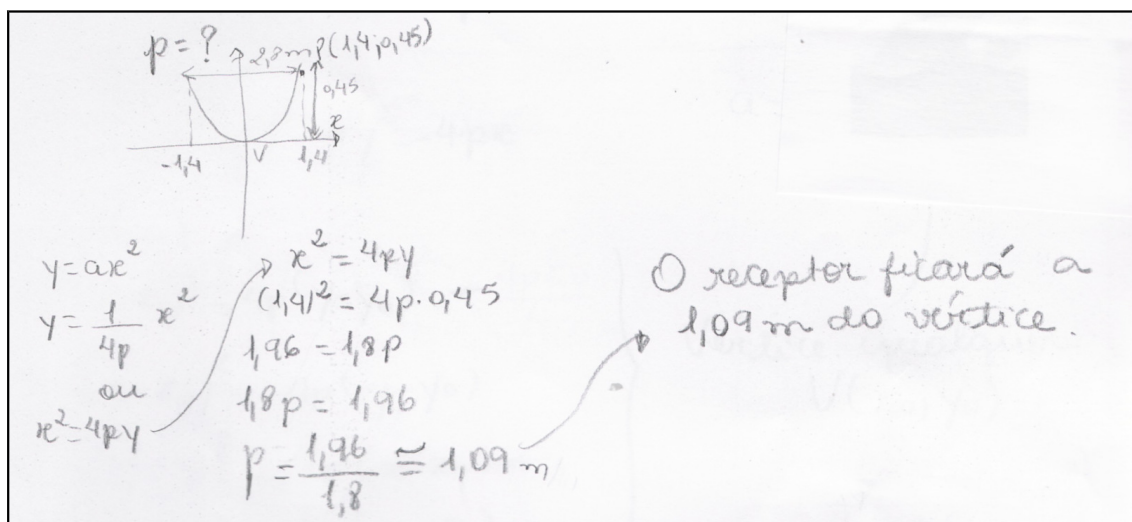 p = ?
2,8 m P(1,4; 0,45)
0,45
x
-1,4 V 1,4
y = ax²
y = 1/4p x²
ou
x² = 4py
x² = 4py
(1,4)² = 4p · 0,45
1,96 = 1,8p
1,8p = 1,96
p = 1,96/1,8 ≅ 1,09 m
O receptor ficará a
1,09 m do vértice.